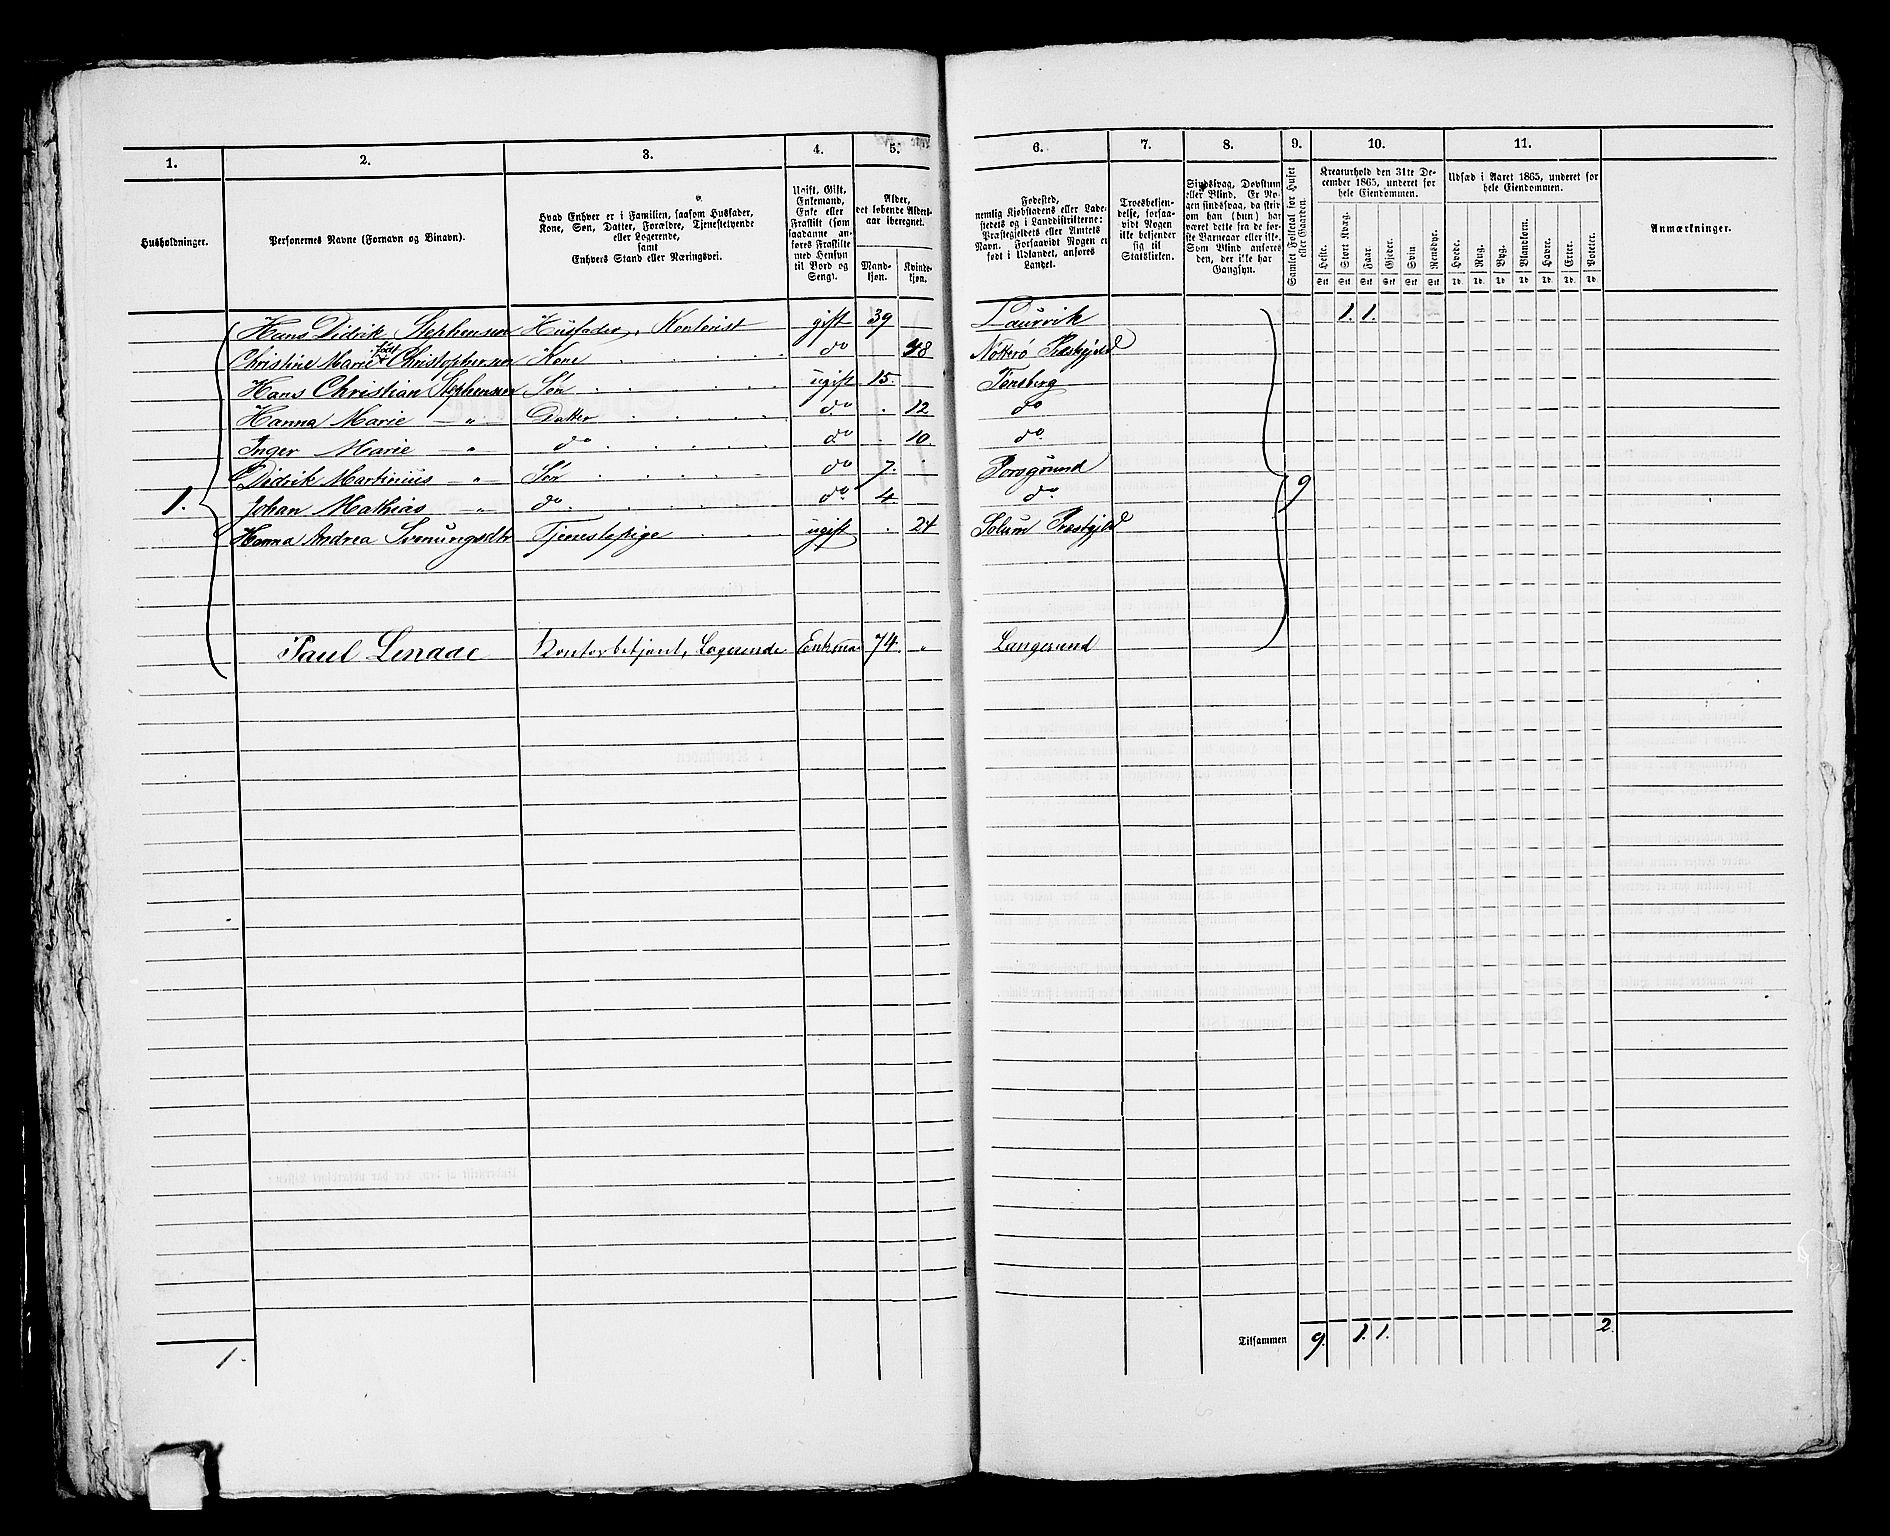 1. 2. 3. 4. 5. 6. 7. 8. 9. 10. 11.
Husholdninger.
Personernes Navne (Fornavn og Binavn).
Hvad Enhver er i Familien, saasom Husfader,
Kone, Søn, Datter, Forældre, Tjenestetyende
eller Logerende,
samt
Enhvers Stand eller Næringsvei.
Ugift, Gift,
Enkemand,
Enke eller
Fraskilt (som
saadanne an-
føres Fraskilte
med Hensyn
til Bord og
Seng).
Alder,
det løbende Alders-
aar iberegnet.
Mand-
kjøn.
Kvinde-
kjøn.
Fødested,
nemlig Kjøbstadens eller Lade-
stedets og i Landdistrikterne:
Præstegjeldets eller Amtets
Navn. Forsaavidt Nogen er
født i Udlandet, anføres
Landet.
Troesbekjen-
delse, forsaa-
vidt Nogen
ikke bekjender
sig til
Statskirken.
Sindssvag, Døvstum
eller Blind. Er No-
gen sindssvag, da skriv
om han (hun) har
været dette fra de før-
ste Barneaar eller ikke.
Som Blind anføres
den, der ikke har
Gangsyn.
Samlet Folketal for Huset
eller Gaarden.
Kreaturhold den 31te De-
cember 1865, underet for
hele Eiendommen.
Heste. Stort Kvæg. Faar. Gjeder. Svin Rensdyr.
Stk Stk Stk Stk Stk Stk
Udsæd i Aaret 1865, underet for
hele Eiendommen.
Hvede. Rug. Byg. Blandkorn. Havre. Erter. Poteter.
Td. Td. Td. Td. Td. Td. Td.
Anmærkninger.
Hans Didrik Stephensen Husfader, Kontorist gift 39 Laurvik 1. 1.
Christine Marie født Christophersen Kone do 38 Nøtterø Præstgjeld
Hans Christian Stephensen Søn ugift 15. Tønsberg
Hanna Marie — „ — Datter do 12 do
Inger Marie — „ — do do 10. do.
Didrik Martinius — „ — Søn do 7. Porsgrund
1. Johan Mathias — „ — do do. 4. do. 9
Hanna Andrea Svenungsdtr Tjenestepige ugift 24 Solum Præstgjeld
Paul Linaae Kontorbetjent, Logerende Enkma 74. „ Langesund
Tilsammen 9. 1. 1. 2.
1.